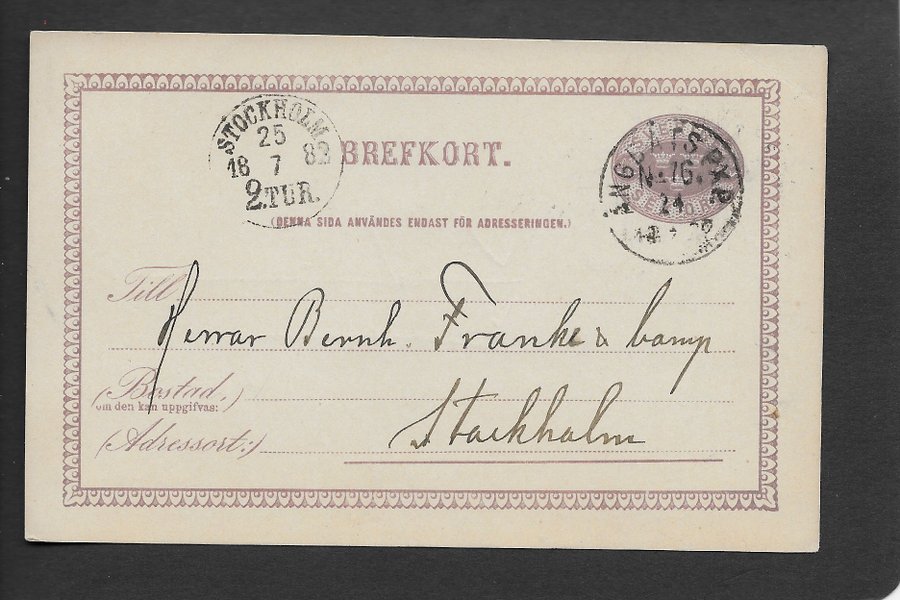 STOCKHOLM
25
18 7 82
2.TUR.
BREFKORT.
ÅNGBÅTS PXP.
N:16.
24
(DENNA SIDA ANVÄNDES ENDAST FÖR ADRESSERINGEN.)
Till
Herrar Bernh. Franke & Comp
(Bostad,)
om den kan uppgifvas:
Stockholm
(Adressort:)